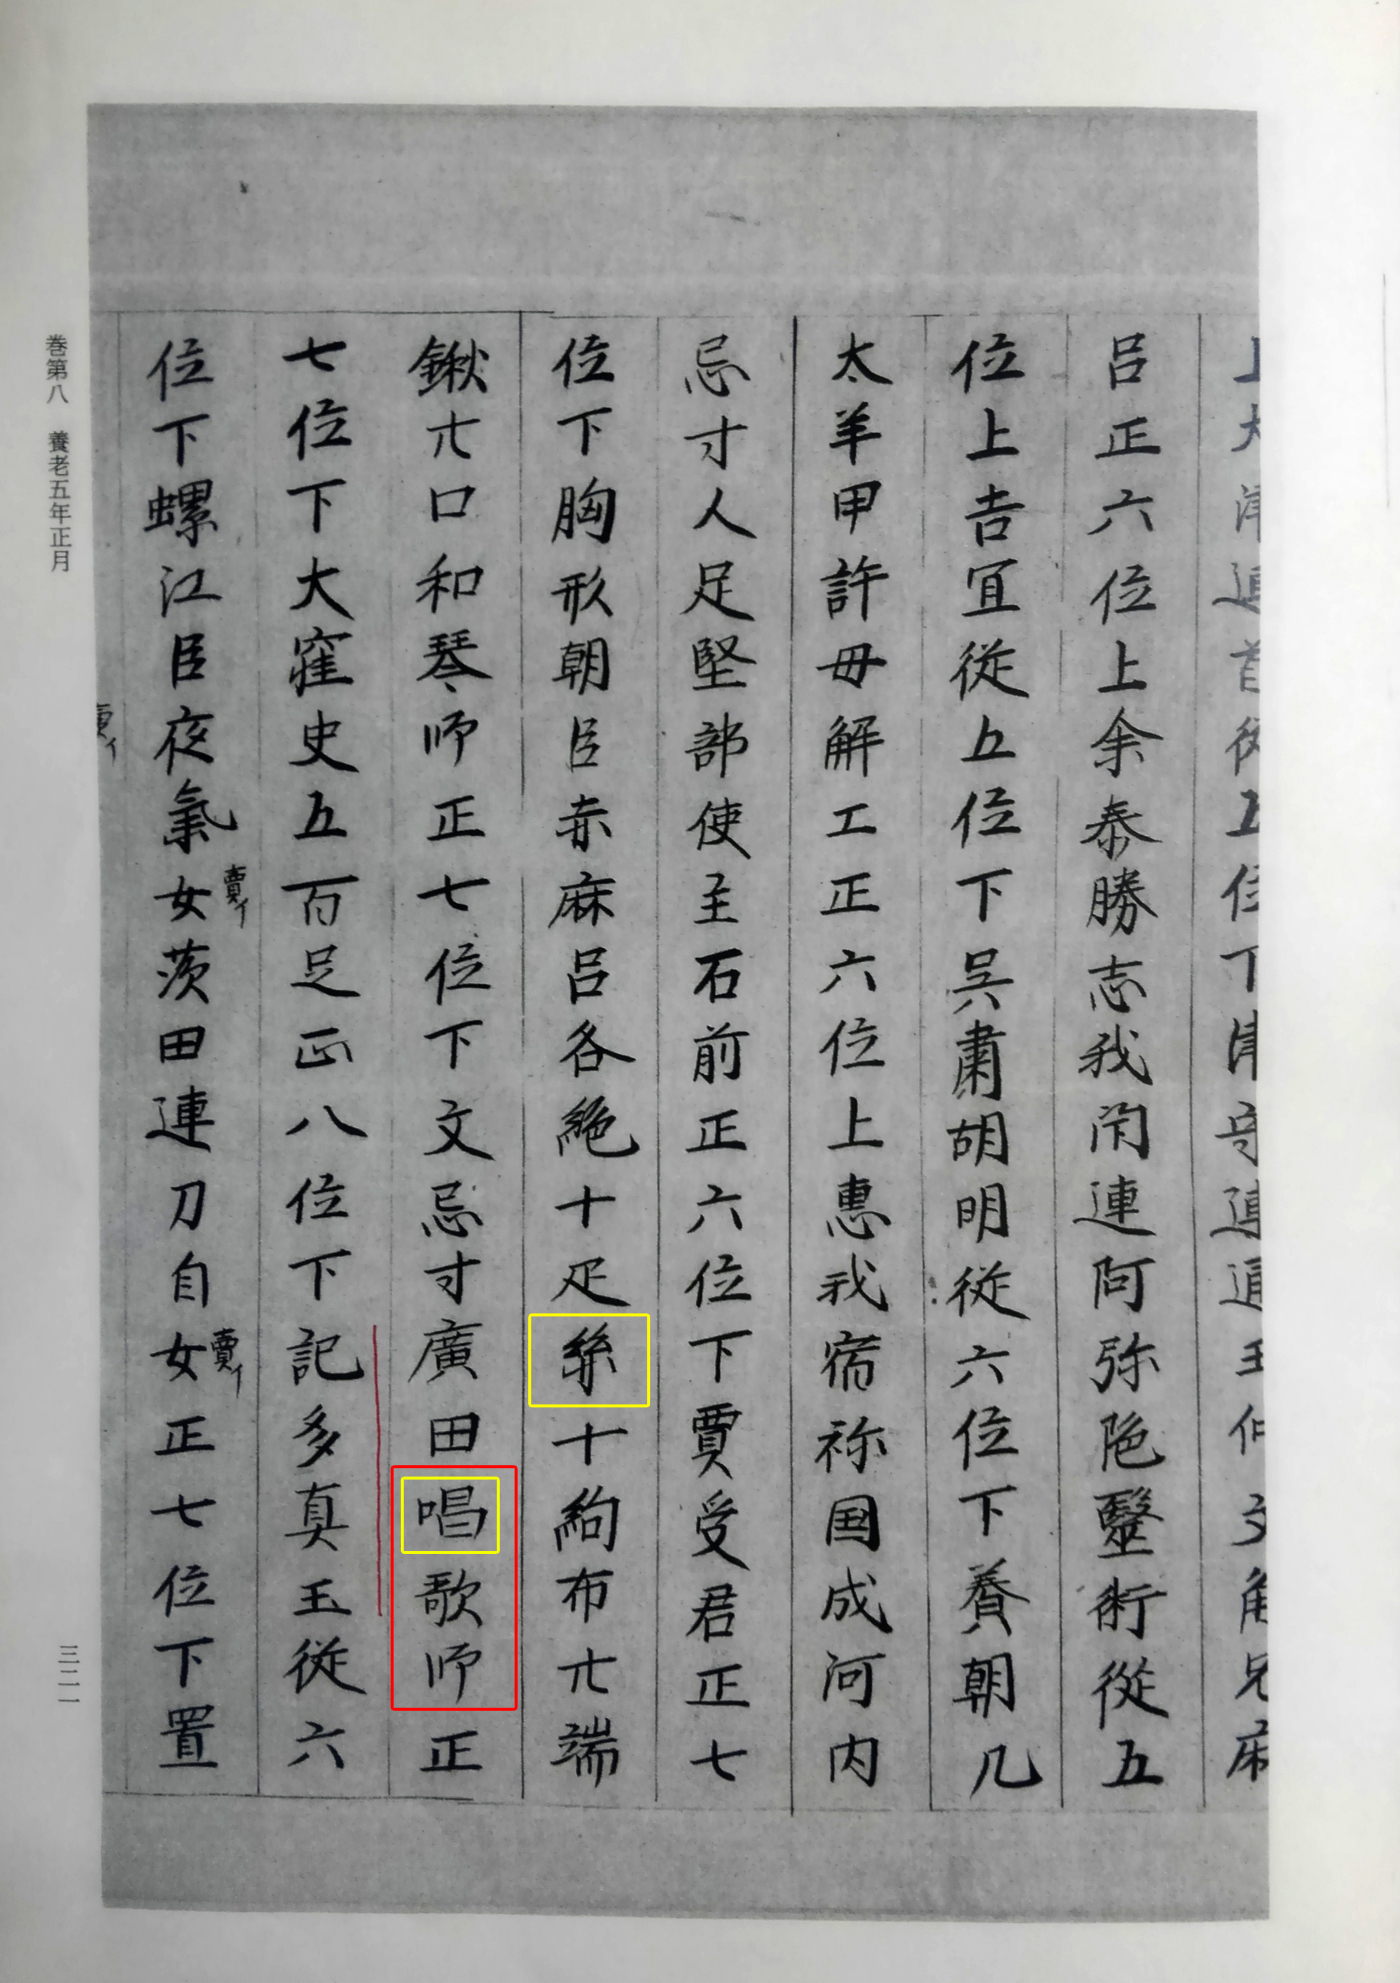 呂正六位上余泰勝志我閇連阿弥陁毉術從五
位上吉冝從五位下吳肅胡明從六位下賮朝几
太羊甲許毋解工正六位上惠我宿祢国成河内
忌寸人足堅部使主石前正六位下賈受君正七
位下胸形朝臣赤麻呂各絁十疋絲十絇布廿端
鍬廿口和琴師正七位下文忌寸廣田唱歌師正
七位下大窪史五百足正八位下記多真玉從六
位下螺江臣夜氣女茨田連刀自女正七位下置
賣イ
賣イ
賣イ
巻第八 養老五年正月
三二一